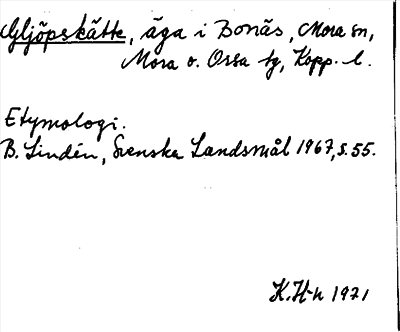 Gljöpskätte, äga i Bonäs, Mora sn,
Mora o. Orsa tg, Kopp. l.
Etymologi.
B. Lindén, Svenska Landsmål 1967, s. 55.
K. H-n 1971